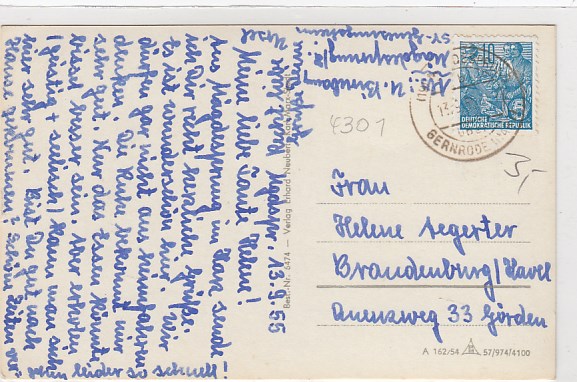 Mägdesprung, 13.9.55
Meine liebe Tante Helene!
Aus Mägdesprung im Harz sende
ich Dir recht herzliche Grüße.
Es ist wunderschön hier. Wir
dürfen gar nicht ans Heimfahren
denken. Die Ruhe bekommt mir
sehr gut. Nur das Essen könnte
bissel besser sein. Aber erholen
(geistig + seelisch) kann man sich
hier sehr gut. Bist Du gut nach
Hause gekommen? Schöne Zeiten
gehen leider so schnell!
Best.-Nr. 6474 — Verlag Erhard Neubert, Karl-Marx-Stadt
4301
10
DEUTSCHE
DEMOKRATISCHE REPUBLIK
GERNRODE
3,-
Frau
Helene Aegerter
Brandenburg/Havel
Anenzweg 33 Görden
A 162/54 57/974/4100